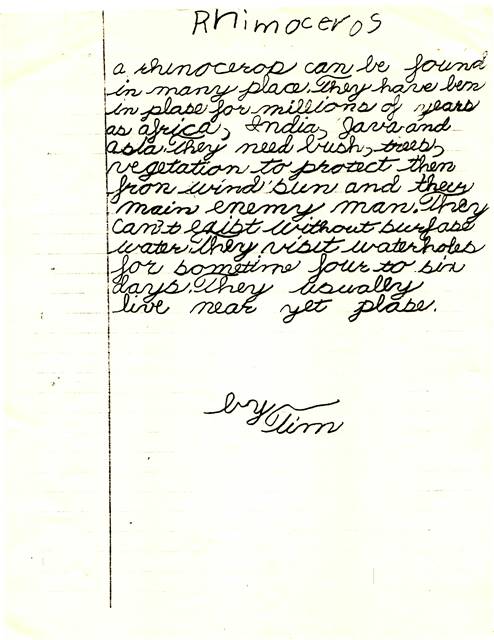 Rhimoceros
a rhinocerop can be found
in many place. They have ben
in plase for millions of years
as africa, India, Java and
asia. They need bush, trees,
vegetation to protect then
fron wind sun and their
main enemy man. They
can't exist without surfase
water. They visit waterholes
for sometime four to six
days. They usually
live near yet plase.
by Tim